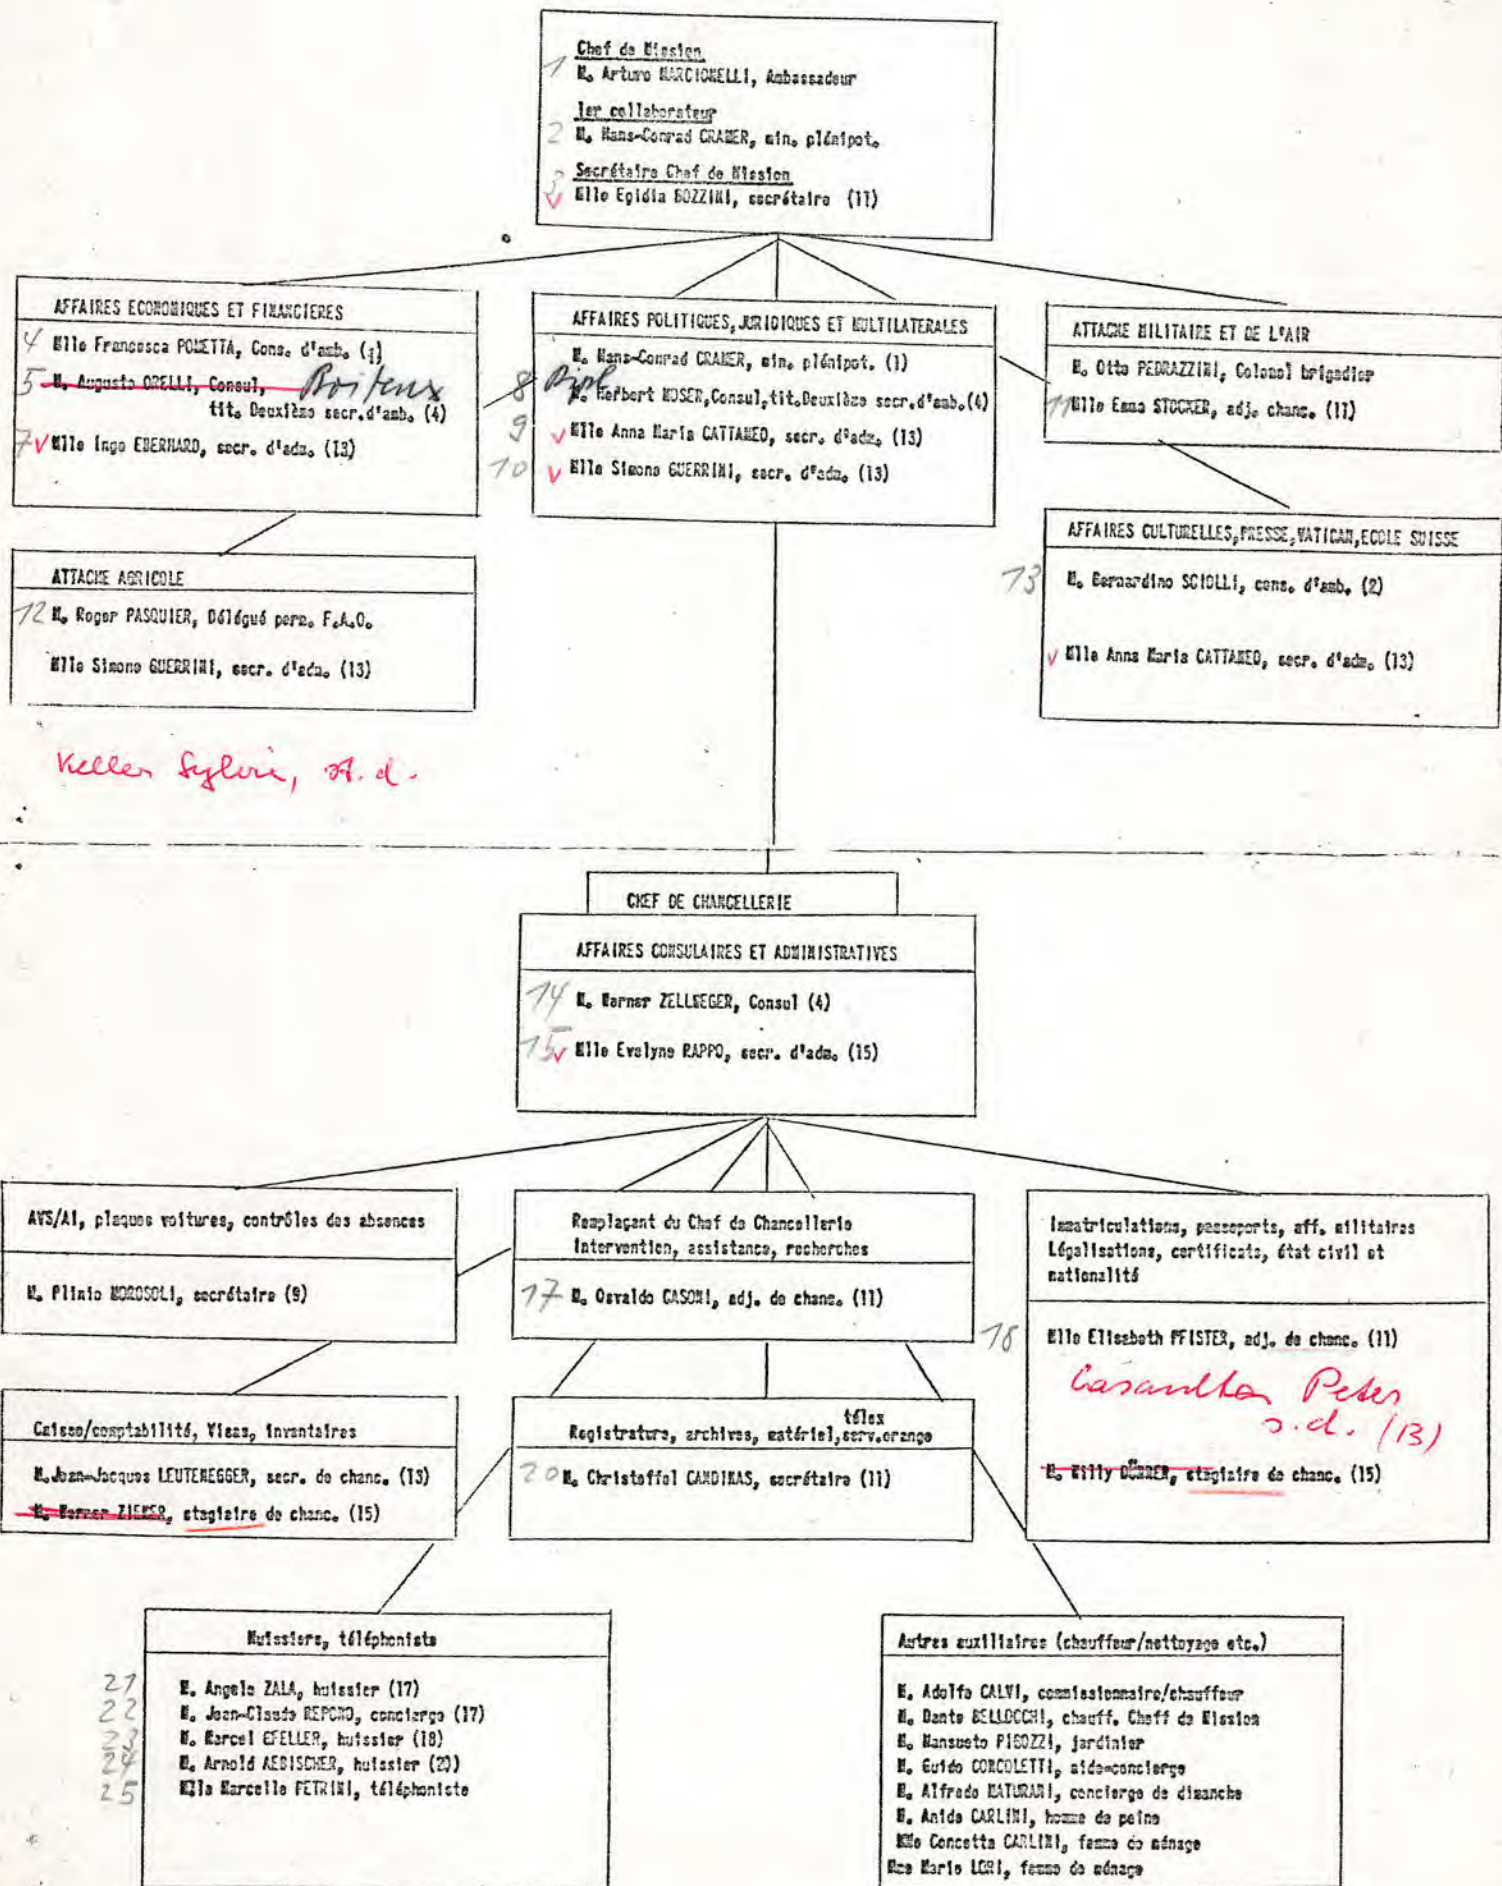 Chef de Mission
1 M. Arturo MARCIONELLI, Ambassadeur
1er collaborateur
2 M. Hans-Conrad CRAMER, min. plénipot.
Secrétaire Chef de Mission
3 v Mlle Egidia BOZZINI, secrétaire (11)
AFFAIRES ECONOMIQUES ET FINANCIERES
4 Mlle Francesca POMETTA, Cons. d'amb. (1)
5 M. Augusto ORELLI, Consul, Boiteux
tit. Deuxième secr.d'amb. (4)
7 v Mlle Inge EBERHARD, secr. d'adm. (13)
AFFAIRES POLITIQUES, JURIDIQUES ET MULTILATERALES
M. Hans-Conrad CRAMER, min. plénipot. (1)
8 M. Herbert MOSER, Consul, tit. Deuxième secr.d'amb. (4)
9 v Mlle Anna Maria CATTANEO, secr. d'adm. (13)
10 v Mlle Simone GUERRINI, secr. d'adm. (13)
ATTACHE MILITAIRE ET DE L'AIR
M. Otto PEDRAZZINI, Colonel brigadier
11 Mlle Emma STOCKER, adj. chanc. (11)
ATTACHE AGRICOLE
12 M. Roger PASQUIER, Délégué perm. F.A.O.
Mlle Simone GUERRINI, secr. d'adm. (13)
AFFAIRES CULTURELLES, PRESSE, VATICAN, ECOLE SUISSE
13 M. Bernardino SCIOLLI, cons. d'amb. (2)
v Mlle Anna Maria CATTANEO, secr. d'adm. (13)
Keller Sylvie, st. d.
CHEF DE CHANCELLERIE
AFFAIRES CONSULAIRES ET ADMINISTRATIVES
14 M. Werner ZELLWEGER, Consul (4)
15 v Mlle Evelyne RAPPO, secr. d'adm. (15)
AVS/AI, plaques voitures, contrôles des absences
M. Plinio MOROSOLI, secrétaire (9)
Remplaçant du Chef de Chancellerie
Intervention, assistance, recherches
17 M. Osvaldo CASONI, adj. de chanc. (11)
Immatriculations, passeports, aff. militaires
Légalisations, certificats, état civil et
nationalité
18 Mlle Elisabeth PFISTER, adj. de chanc. (11)
Casanlta Peter
s.d. (13)
M. Willy DÜRRER, stagiaire de chanc. (15)
Caisse/comptabilité, Visas, inventaires
M. Jean-Jacques LEUTENEGGER, secr. de chanc. (13)
M. Werner ZIEMER, stagiaire de chanc. (15)
télex
Registrature, archives, matériel, serv.orange
20 M. Christoffel CANDINAS, secrétaire (11)
Huissiers, téléphoniste
21 M. Angelo ZALA, huissier (17)
22 M. Jean-Claude REPOND, concierge (17)
23 M. Marcel EFELLER, huissier (18)
24 M. Arnold AEBISCHER, huissier (20)
25 Mlle Marcella PETRINI, téléphoniste
Autres auxiliaires (chauffeur/nettoyage etc.)
M. Adolfo CALVI, commissionnaire/chauffeur
M. Dante BELLOCCHI, chauff. Cheff de Mission
M. Mansueto PIGOZZI, jardinier
M. Guido CORCOLETTI, aide-concierge
M. Alfredo NATURANI, concierge de dimanche
M. Anido CARLINI, homme de peine
Mme Concetta CARLINI, femme de ménage
Mme Maria LORI, femme de ménage